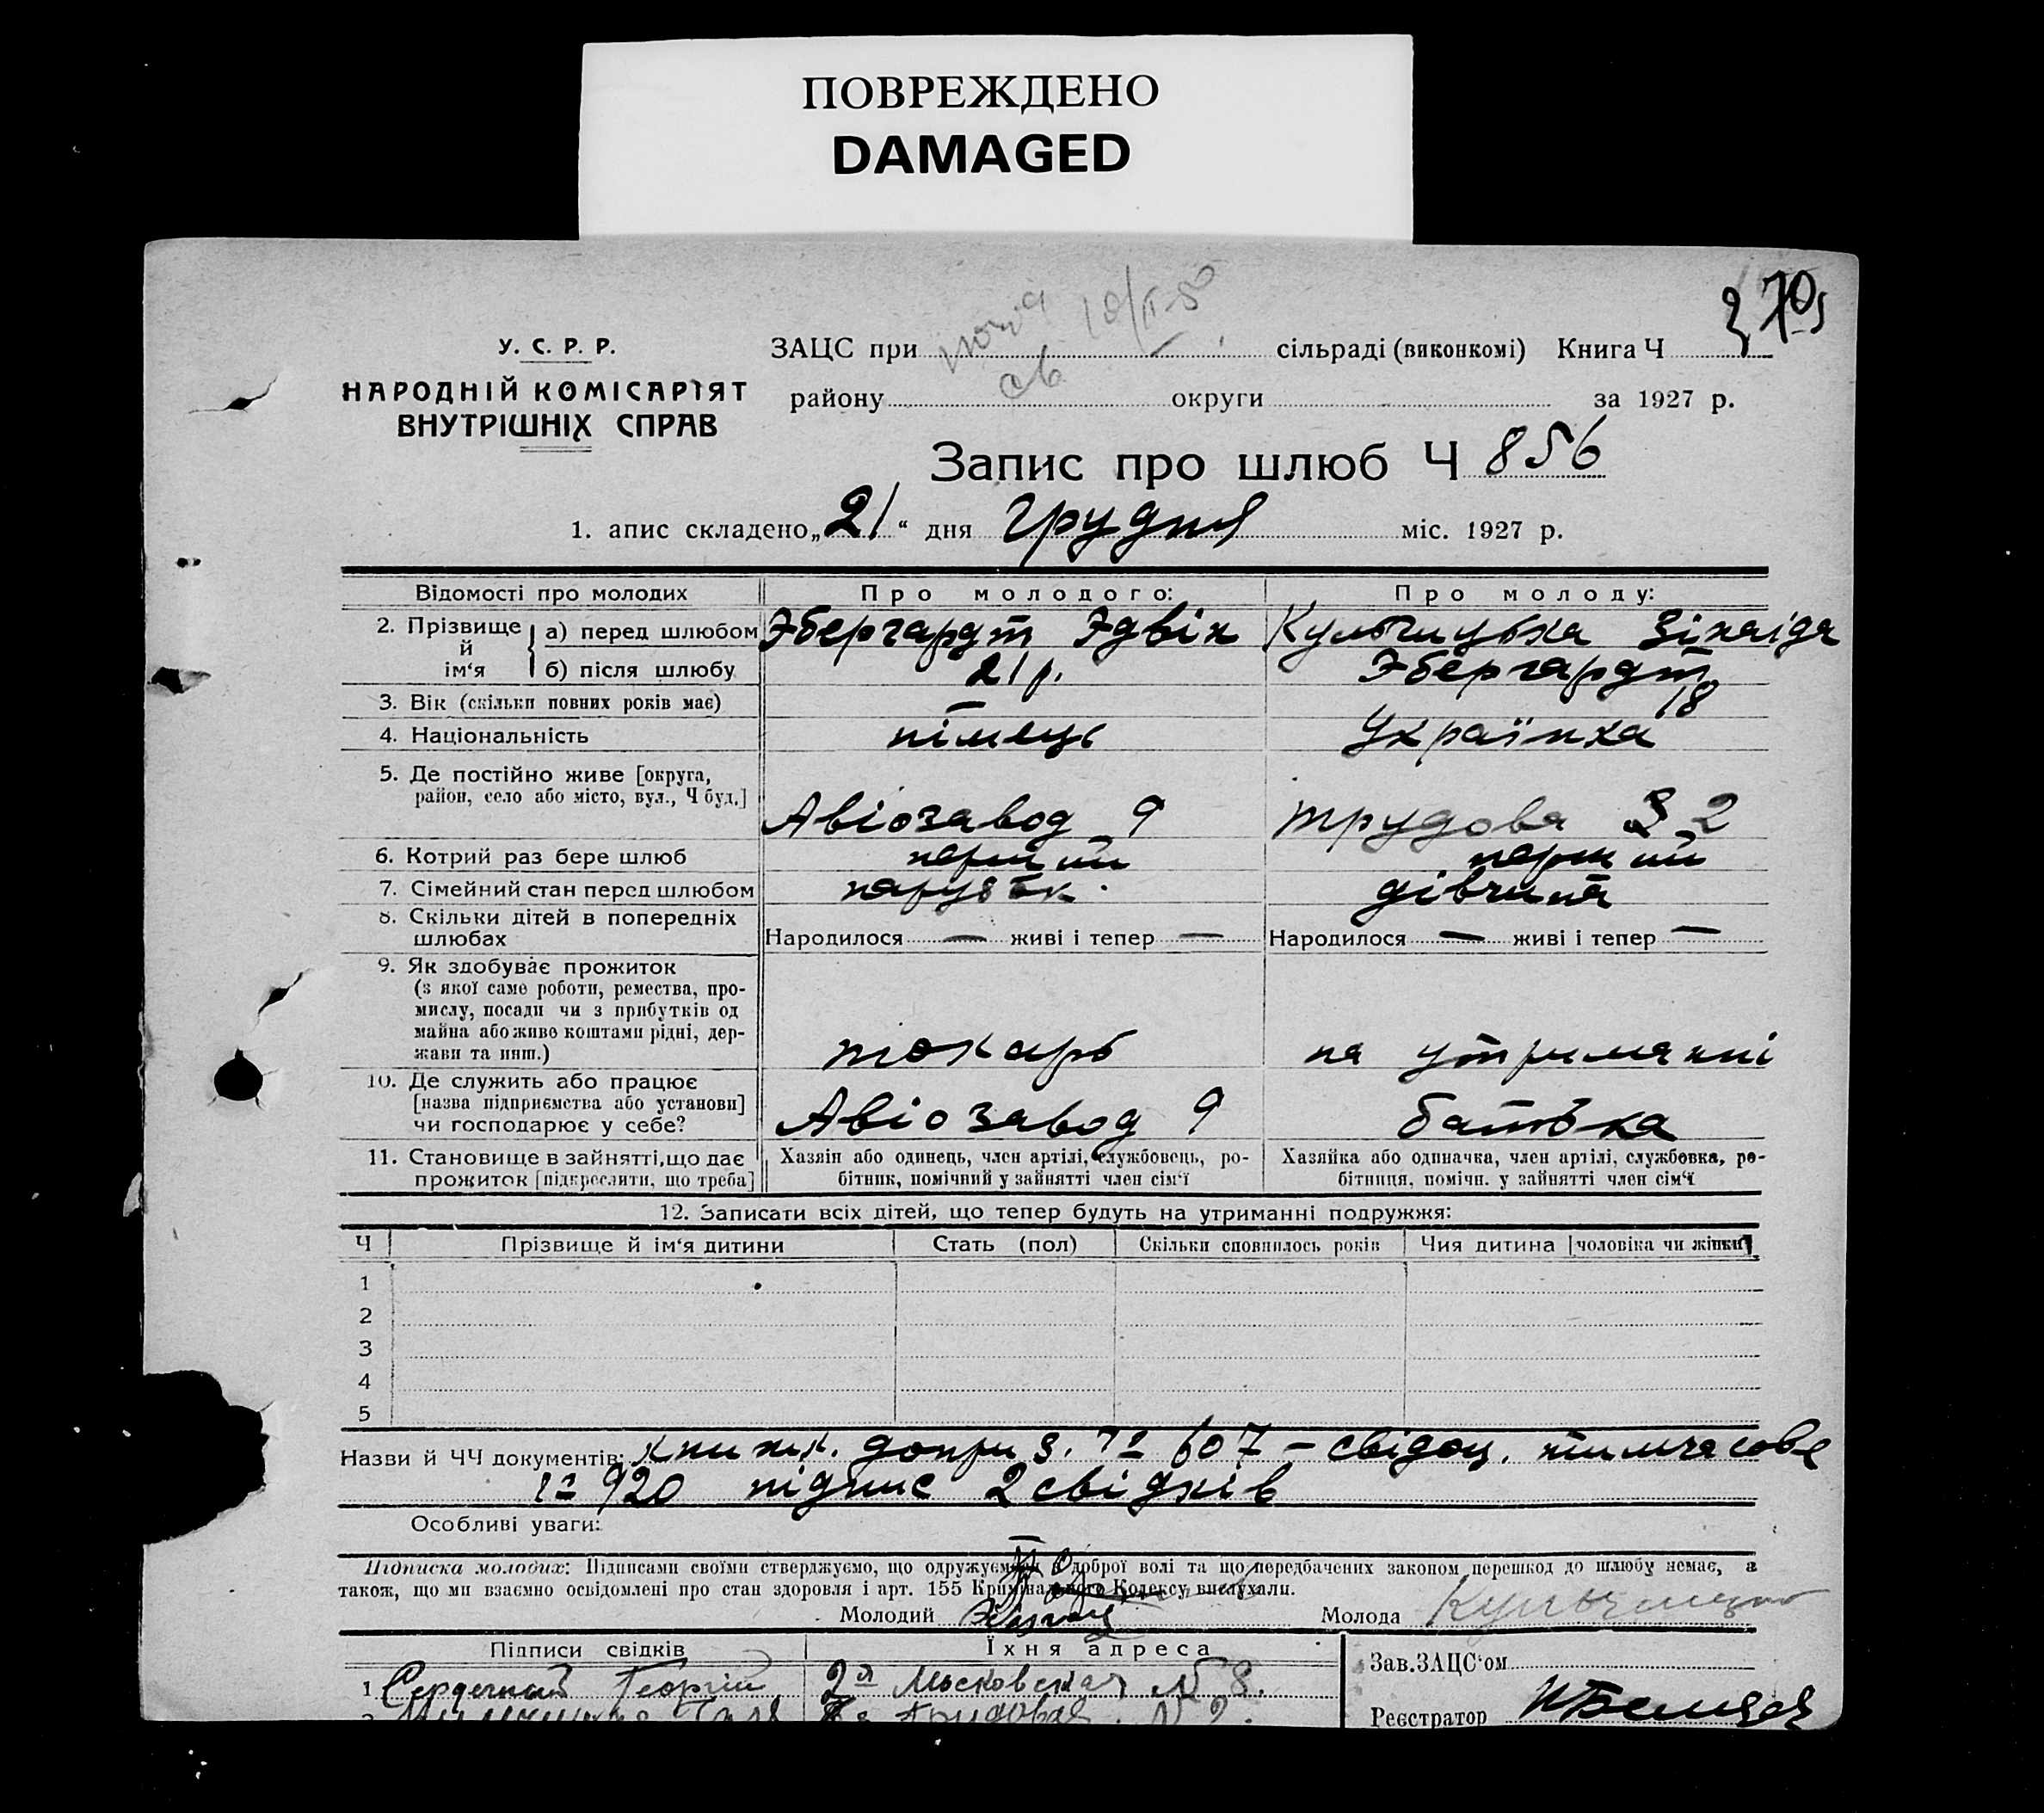 ПОВРЕЖДЕНО
DAMAGED
270
У. С. Р. Р.
НАРОДНІЙ КОМІСАРІЯТ
ВНУТРІШНІХ СПРАВ
ЗАЦС при сільраді (виконкомі) Книга Ч
району округи за 1927 р.
Запис про шлюб Ч 856
1. апис складено „21“ дня грудня міс. 1927 р.
Відомості про молодих Про молодого: Про молоду:
2. Прізвище й ім‘я а) перед шлюбом Эбергардт Эдвін Кульчицька Зінаіда
б) після шлюбу Эбергардт
3. Вік (скільки повних років має) 21 р. 18
4. Національність німець Українка
5. Де постійно живе [округа,
район, село або місто, вул., Ч буд.] Авіозавод 9 трудова 32
6. Котрий раз бере шлюб перший перший
7. Сімейний стан перед шлюбом парубок. дівчина
8. Скільки дітей в попередніх
шлюбах Народилося — живі і тепер — Народилося — живі і тепер —
9. Як здобуває прожиток
(з якої саме роботи, ремества, про-
мислу, посади чи з прибутків од
майна або живе коштами рідні, дер-
жави та инш.) токарь на утриманні
10. Де служить або працює
[назва підприємства або установи]
чи господарює у себе? Авіозавод 9 батька
11. Становище в зайнятті, що дає
прожиток [підкреслити, що треба]
Хазяін або одинець, член артілі, службовець, ро-
бітник, помічний у зайнятті член сім‘ї
Хазяйка або одиначка, член артілі, службовка, ро-
бітниця, помічн. у зайнятті член сім‘ї
12. Записати всіх дітей, що тепер будуть на утриманні подружжя:
Ч Прізвище й ім‘я дитини Стать (пол) Скільки сповнилось років Чия дитина [чоловіка чи жінки]
1
2
3
4
5
Назви й ЧЧ документів: книжк. допри з. 607 – свідоц. тимчасове
920 підпис 2 свідків
Особливі уваги:
Підписка молодих: Підписами своїми стверджуємо, що одружуємось з доброї волі та що передбачених законом перешкод до шлюбу немає, а
також, що ми взаємно освідомлені про стан здоровля і арт. 155 Кримінального Кодексу вислухали.
Молодий Молода
Підписи свідків Їхня адреса
Зав.ЗАЦС‘ом
1 Георгій 2я Московская № 8.
Реєстратор